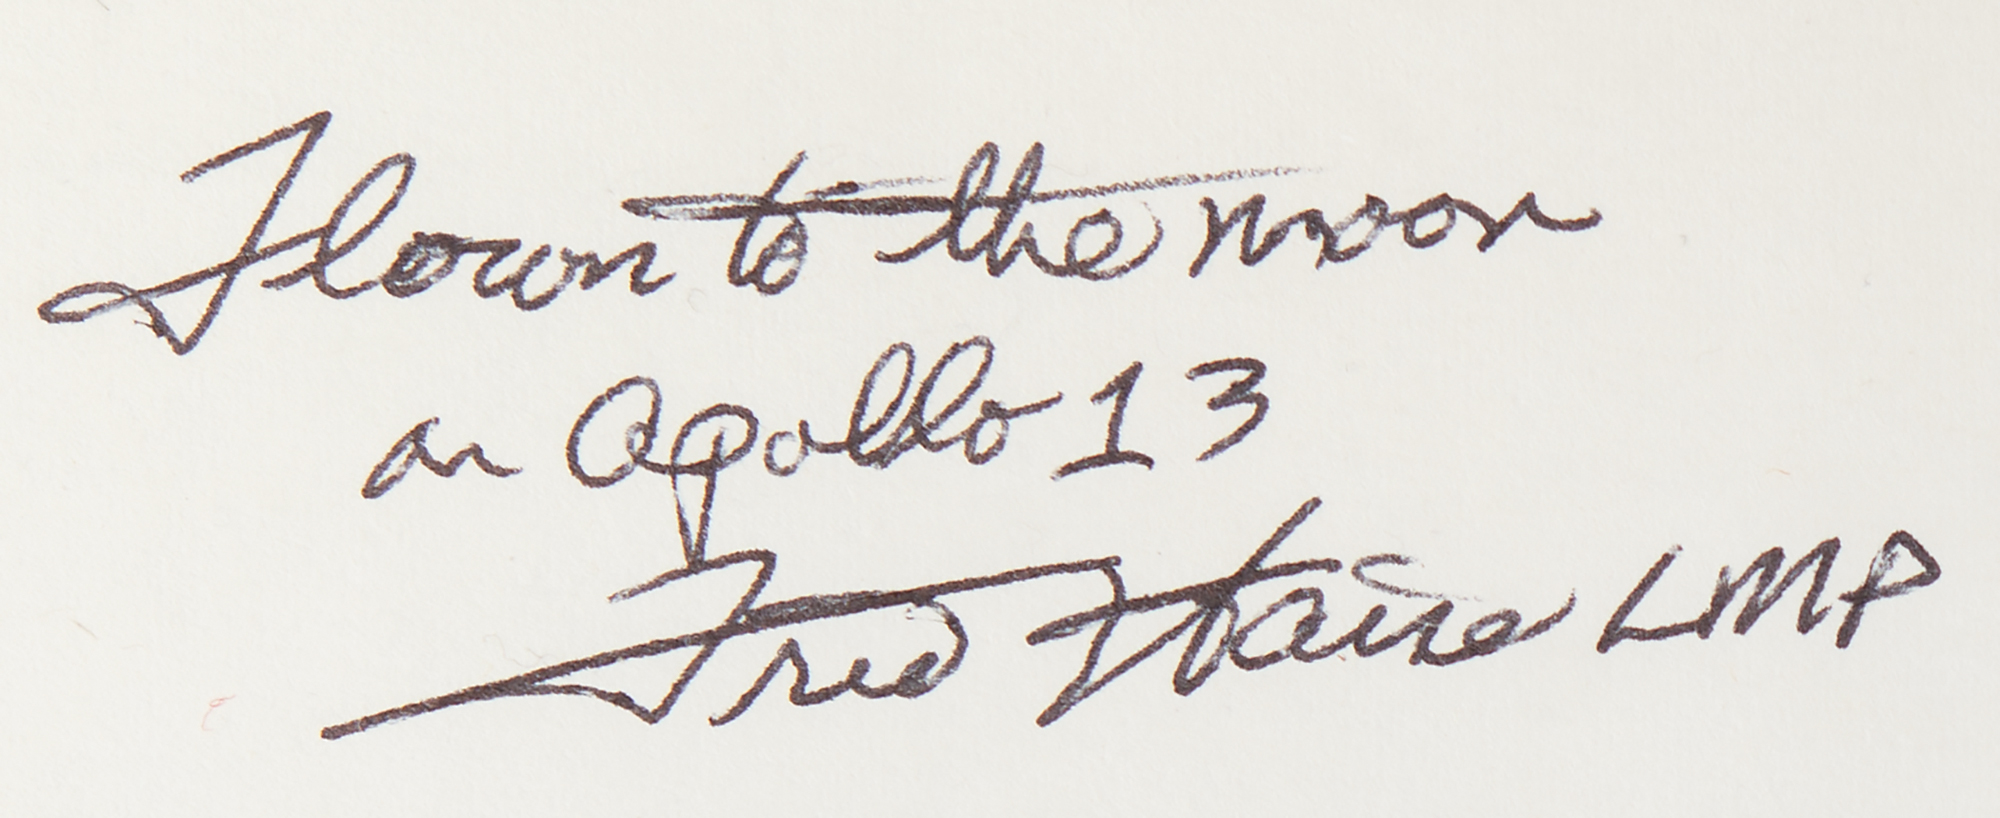 Flown to the moon
on Apollo 13
Fred Haise LMP